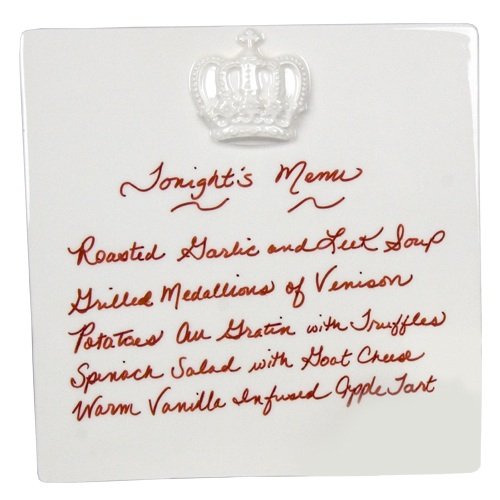 Tonight's Menu
Roasted Garlic and Leek Soup
Grilled Medallions of Venison
Potatoes Au Gratin with Truffles
Spinach Salad with Goat Cheese
Warm Vanilla Infused Apple Tart